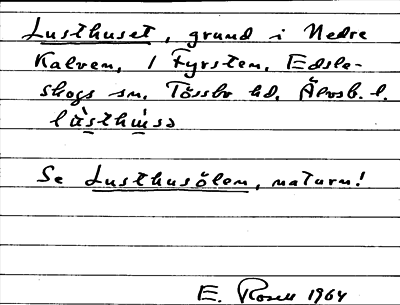 Lusthuset, grund i Nedre
Kalven, i Fyrsten, Edsle-
skogs sn. Tössbo hd. Älvsb. l.
Se Lusthusölen, naturn!
E. Rosell 1964